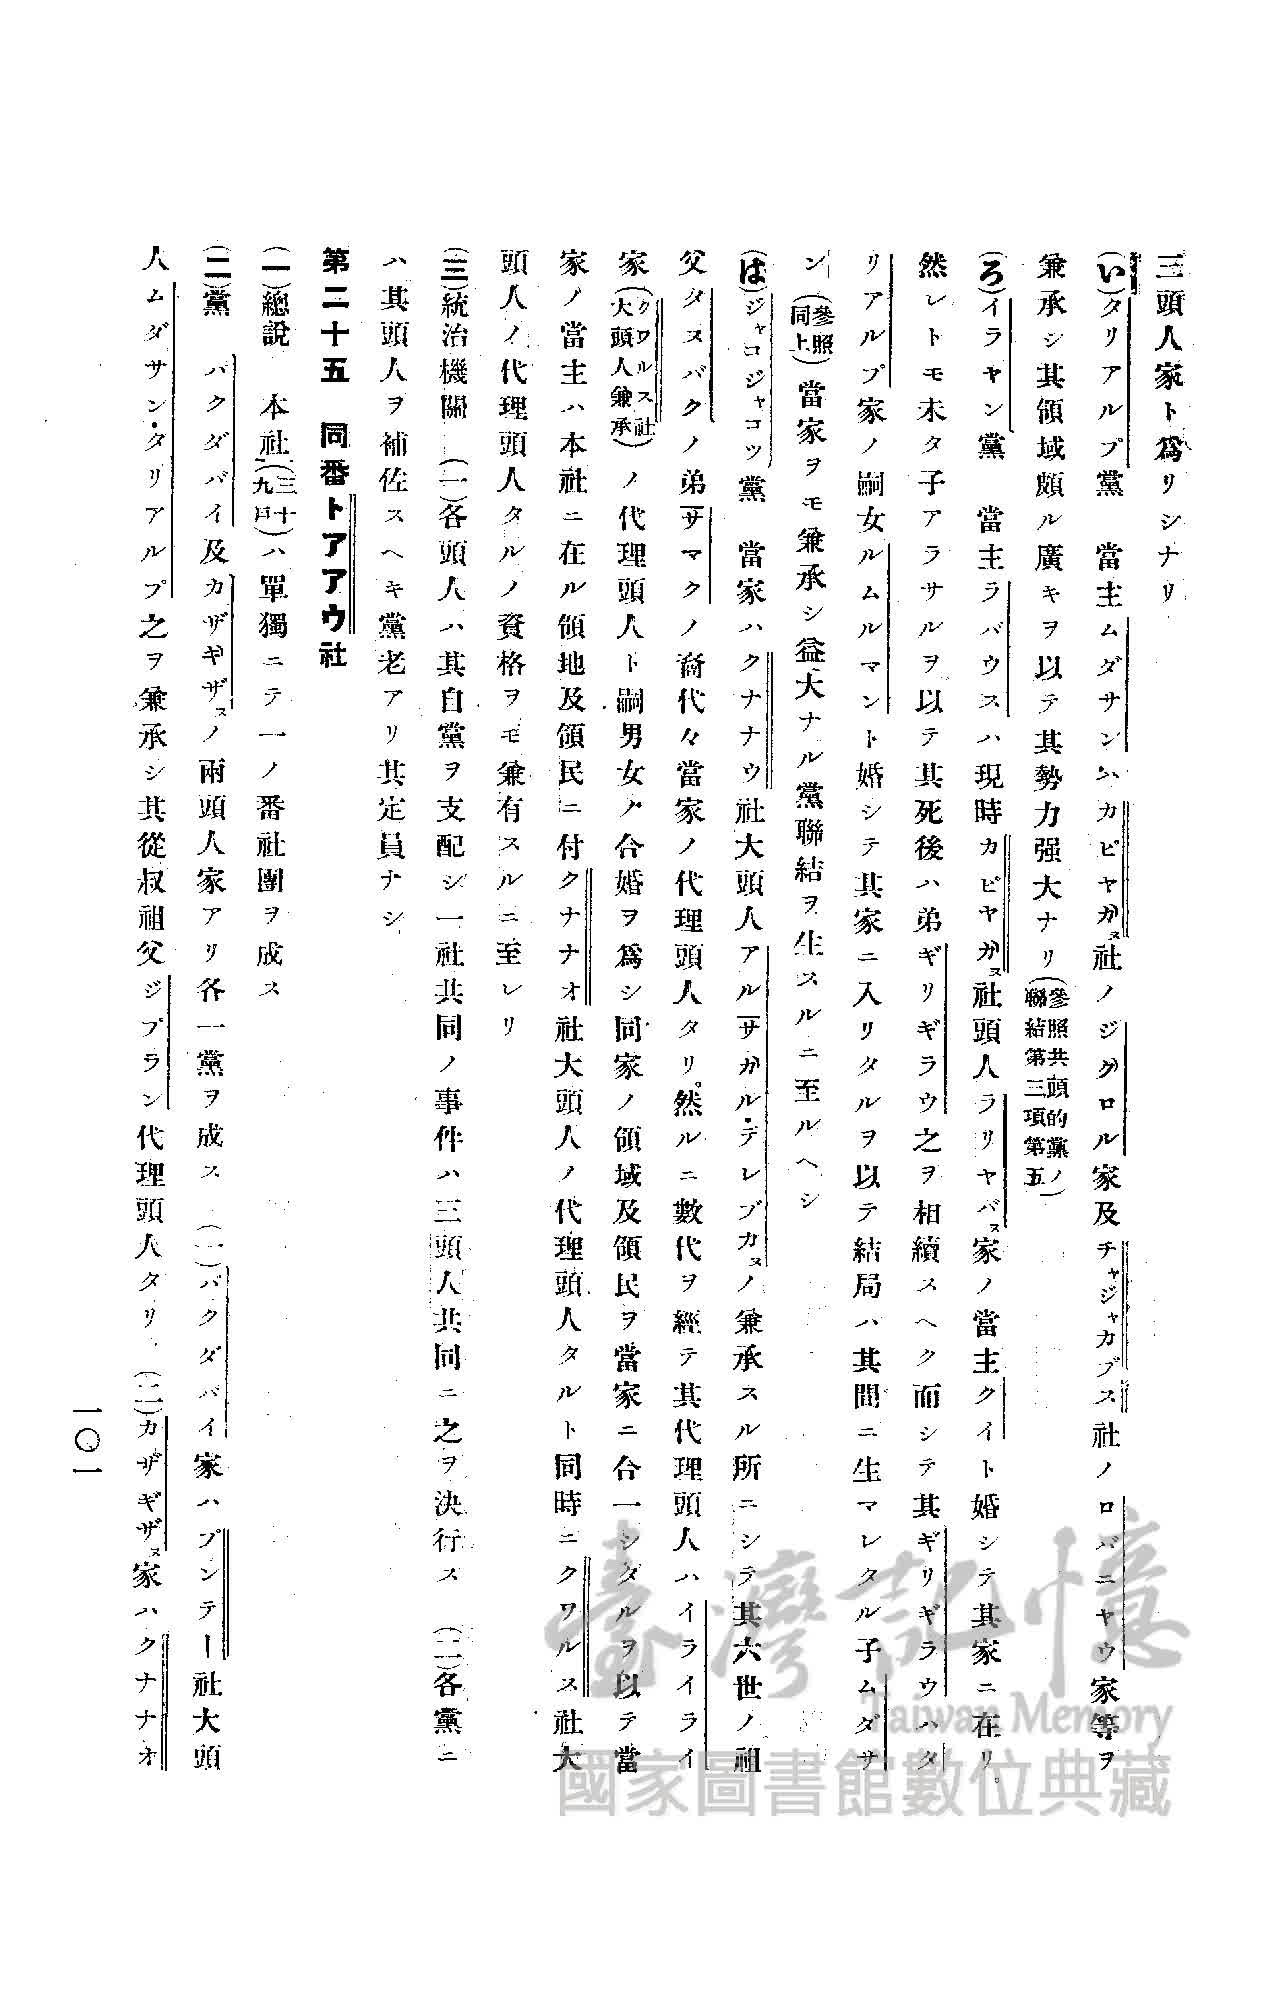 三頭人家ト爲リシナリ
(い)タリアルプ黨　當主ムダサンハカピヤガヌ社ノジグロル家及チャジャカブス社ノロバニヤウ家等ヲ
兼承シ其領域頗ル廣キヲ以テ其勢力强大ナリ(參照共頭的黨ノ聯結第三項第五)
(ろ)イラヤン黨　當主ラバウスハ現時カピヤガヌ社頭人ラリヤバヌ家ノ當主クイト婚シテ其家ニ在リ。
然レトモ未タ子アラサルヲ以テ其死後ハ弟ギリギラウ之ヲ相續スヘク而シテ其ギリギラウハタ
リアルプ家ノ嗣女ルムルマント婚シテ其家ニ入リタルヲ以テ結局ハ其間ニ生マレタル子ムダサ
ン(參照同上)當家ヲモ兼承シ益大ナル黨聯結ヲ生スルニ至ルヘシ
(は)ジャコジャコツ黨　當家ハクナナウ社大頭人アルサガル・デレブカヌノ兼承スル所ニシテ其六世ノ祖
父タスバクノ弟サマクノ裔代々當家ノ代理頭人タリ。然ルニ數代ヲ經テ其代理頭人ハイライライ
家(クワルス社大頭人兼承)ノ代理頭人ト嗣男女ノ合婚ヲ爲シ同家ノ領域及領民ヲ當家ニ合一シタルヲ以テ當
家ノ當主ハ本社ニ在ル領地及領民ニ付クナナオ社大頭人ノ代理頭人タルト同時ニクワルス社大
頭人ノ代理頭人タルノ資格ヲモ兼有スルニ至レリ
(三)統治機關　(一)各頭人ハ其自黨ヲ支配シ一社共同ノ事件ハ三頭人共同ニ之ヲ決行ス　(二)各黨ニ
ハ其頭人ヲ補佐スヘキ黨老アリ其定員ナシ
第二十五　同番トアアウ社
(一)總說　本社(三十九戶)ハ單獨ニテ一ノ番社團ヲ成ス
(二)黨　バクダバイ及カザギザヌノ兩頭人家アリ各一黨ヲ成ス　(一)バクダバイ家ハブンテー社大頭
人ムダサン・タリアルプ之ヲ兼承シ其從叔祖父ジプラン代理頭人タリ、(二)カザギザヌ家ハクナナオ
一〇一
臺灣記憶
Taiwan Memory
國家圖書館數位典藏